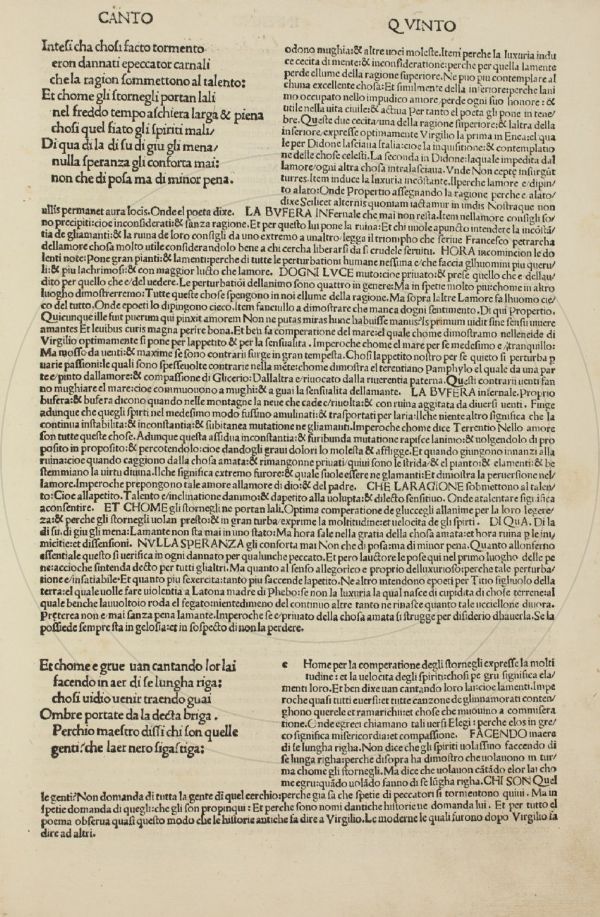 CANTO
QVINTO
Intesi cha chosi facto tormento
eron dannati epeccator carnali
che la ragion sommettono al talento:
Et chome gli stornegli portan lali
nel freddo tempo aschiera larga & piena
chosi quel fiato gli spiriti mali/
Di qua di la di su di giu gli mena/
nulla speranza gli conforta mai:
non che di posa ma di minor pena.
odono mughia: & altre uoci moleste. Item perche la luxuria indu
ce cecita di mente: & inconsideratione: perche per quella lamente
perde ellume della ragione superiore. Ne puo piu contemplare al
chuna excellente chosa: Et similmente della inferiore: perche lani
mo occupato nello impudico amore, perde ogni suo honore: &
utile nella uita ciuile: & actiua Per tanto el poeta gli pone in tene/
bre. Queste due cecita/una della ragione superiore: & laltra della
inferiore, expresse optimamente Virgilio la prima in Enea: el qua
le per Didone lasciaua Italia: cioe la inquisitione: & contemplatio
ne delle chose celesti. La seconda in Didone: laquale impedita dal
lamore/ogni altra chosa intralasciaua. Vnde Non ceptę insurgũt
turres. Item induce la luxuria incõstante. Ilperche lamore e dipin/
to alato: Onde Propertio assegnando la ragione perche e alato/
dixe Scilicet alternis quoniam iactamur in undis Nostraque non
ullis permanet aura locis. Onde el poeta dixe. LA BVFERA INfernale che mai non resta. Item nellamore consigli so/
no precipiti: cioe inconsiderati: & sanza ragione. Et per questo lui pone la ruina: Et chi uuole apuncto intendere la incõstã
tia de gliamanti: & la ruina de loro consigli da uno extremo a unaltro/legga il triompho che scriue Francesco petrarcha
dellamore chosa molto utile considerandolo bene a chi cercha liberarsi da si crudele seruitu. HORA incomincion le do
lenti note: Pone gran pianti: & lamenti: perche di tutte le perturbationi humane nessuna e/che faccia glihuomini piu queru/
li: & piu lachrimosi: & con maggior lucto che lamore. DOGNI LVCE muto: cioe priuato: & prese quello che e della u/
dito per quello che e/del uedere. Le perturbatiõi dellanimo sono quattro in genere: Ma in spetie molto piu: chome in altro
luogho dimostrerremo: Tutte queste chose spengono in noi ellume della ragione. Ma sopra laltre Lamore fa lhuomo cie/
co del tutto. Onde epoeti lo dipingono cieco. Item fanciullo a dimostrare che manca dogni sentimento. Di qui Propertio.
Quicunque ille fuit puerum qui pinxit amorem Non ne putas miras hunc habuisse manus: Is primum uidit sine sensu uiuere
amantes Et leuibus curis magna perire bona. Et ben fa comperatione del mare: el quale chome dimostramo nelleneide di
Virgilio optimamente si pone per lappetito & per la sensualita. Imperoche chome el mare per se medesimo e/tranquillo:
Ma mosso da uenti: & maxime se sono contrarii surge in gran tempesta. Chosi lappetito nostro per se quieto si perturba p
uarie passioni: le quali sono spesseuolte contrarie nella mẽte: chome dimostra el terentiano Pamphylo el quale da una par
te e/pinto dallamore: & compassione di Glicerio: Dallaltra e/riuocato dalla riuerentia paterna. Questi contrarii uenti fan/
no mughiare el mare: cioe commuouono a mughi: & a guai la sensualita dellamante. LA BVFERA infernale. Proprio
bufera: & bufera dicono quando nelle montagne la neue che cade e/riuolta: & con ruina aggitata da diuersi uenti. Finge
adunque che quegli spirti nel medesimo modo fussino amulinati: & trasportati per laria: Ilche niente altro significa che la
continua instabilita: & inconstantia: & subitanea mutatione ne gliamanti. Imperoche chome dixe Terrentio Nello amore
son tutte queste chose. Adunque questa assidua inconstantia: & furibunda mutatione rapisce lanimo: & uolgendolo di pro
posito in proposito: & percotendolo: cioe dandogli graui dolori lo molesta & affligge. Et quando giungono innanzi alla
ruina: cioe quando caggiono dalla chosa amata: & rimangonne priuati/quiui sono le strida/& el pianto: & elamenti: & be
stemmiano la uirtu diuina. Ilche significa extremo furore: & quale suole essere ne glamanti: Et dimostra la peruersione nel/
lamore. Imperoche prepongono tale amore allamore di dio: & del padre. CHE LA RAGIONE sobmettono al talen/
to: Cioe allapetito. Talento e/inclinatione danimo: & dapetito alla uolupta: & dilecto sensitiuo. Onde atalentare significa
aconsentire. ET CHOME gli stornegli ne portan lali. Optima comperatione de gluccegli allanime per la loro legere/
za: & perche gli stornegli uolan presto: & in gran turba/exprime la moltitudine: et uelocita de gli spirti. DI QVA. Di la
di su. di giu gli mena: Lamante non sta mai in uno stato: Ma hora sale nella gratia della chosa amata: et hora ruina p le ini/
micitie: et dissensioni. NVLLA SPERANZA gli conforta mai Non che di posa: ma di minor pena. Quanto allonferno
essentiale questo si uerifica in ogni dannato per qualunche peccato. Et pero lauctore le pose qui nel primo luogho delle pe
ne: accioche sintenda decto per tutti glialtri. Ma quanto al senso allegorico e proprio delluxurioso: perche tale perturba/
tione e/insatiabile: Et quanto piu sexercita: tanto piu saccende lapetito. Ne altro intendono epoeti per Titio figliuolo della
terra: el quale uolle fare uiolentia a Latona madre di Phebo: se non la luxuria la qual nasce di cupidita di chose terrene: al
quale benche lauuoltoio roda el fegato: nientedimeno del continuo altre tanto ne rinasce quanto tale uccellone diuora.
Pręterea non e/mai sanza pena lamante. Imperoche se e/priuato della chosa amata si strugge per disiderio dhauerla. Se la
possiede sempre sta in gelosia: et in sospecto di non la perdere.
Et chome e grue uan cantando lor lai
facendo in aer di se lungha riga:
chosi uidio uenir traendo guai
Ombre portate da la decta briga.
Perchio maestro dissi chi son quelle
genti? che laer nero si gastiga:
e Home per la comperatione degli stornegli expresse la molti
tudine: et la uelocita degli spiriti: chosi pe gru significa ela/
menti loro. Et ben dixe uan cantando loro lai: cioe lamenti. Impe
roche quasi tutti euersi et tutte canzone de glinnamorati conten/
ghono querele et ramarichi: et chose che muouino a commisera
tione. Onde egreci chiamano tali uersi Elegi: perche elos in gre/
co significa misericordia: et compassione. FACENDO in aere
di se lungha righa. Non dice che gli spiriti uolassino faccendo di
se lunga righa: perche disopra ha dimostro che uolauono in tur/
ma chome gli stornegli. Ma dice che uolauon cãtãdo elor lai cho
me egru: quãdo uolãdo fanno di se lũgha righa. CHI SON Quel
le genti? Non domanda di tutta la gente di quel cerchio: perche gia sa che spetie di peccatori si tormentono quiui. Ma in
spetie domanda di quegli: che gli son propinqui: Et perche sono nomi dantiche historie ne domanda lui. Et per tutto el
poema obserua quasi questo modo che le historie antiche fa dire a Virgilio. Le moderne le quali furono dopo Virgilio fa
dire ad altri.